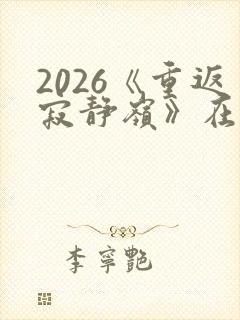 2026《重返
寂静嶺》在
李寧艷